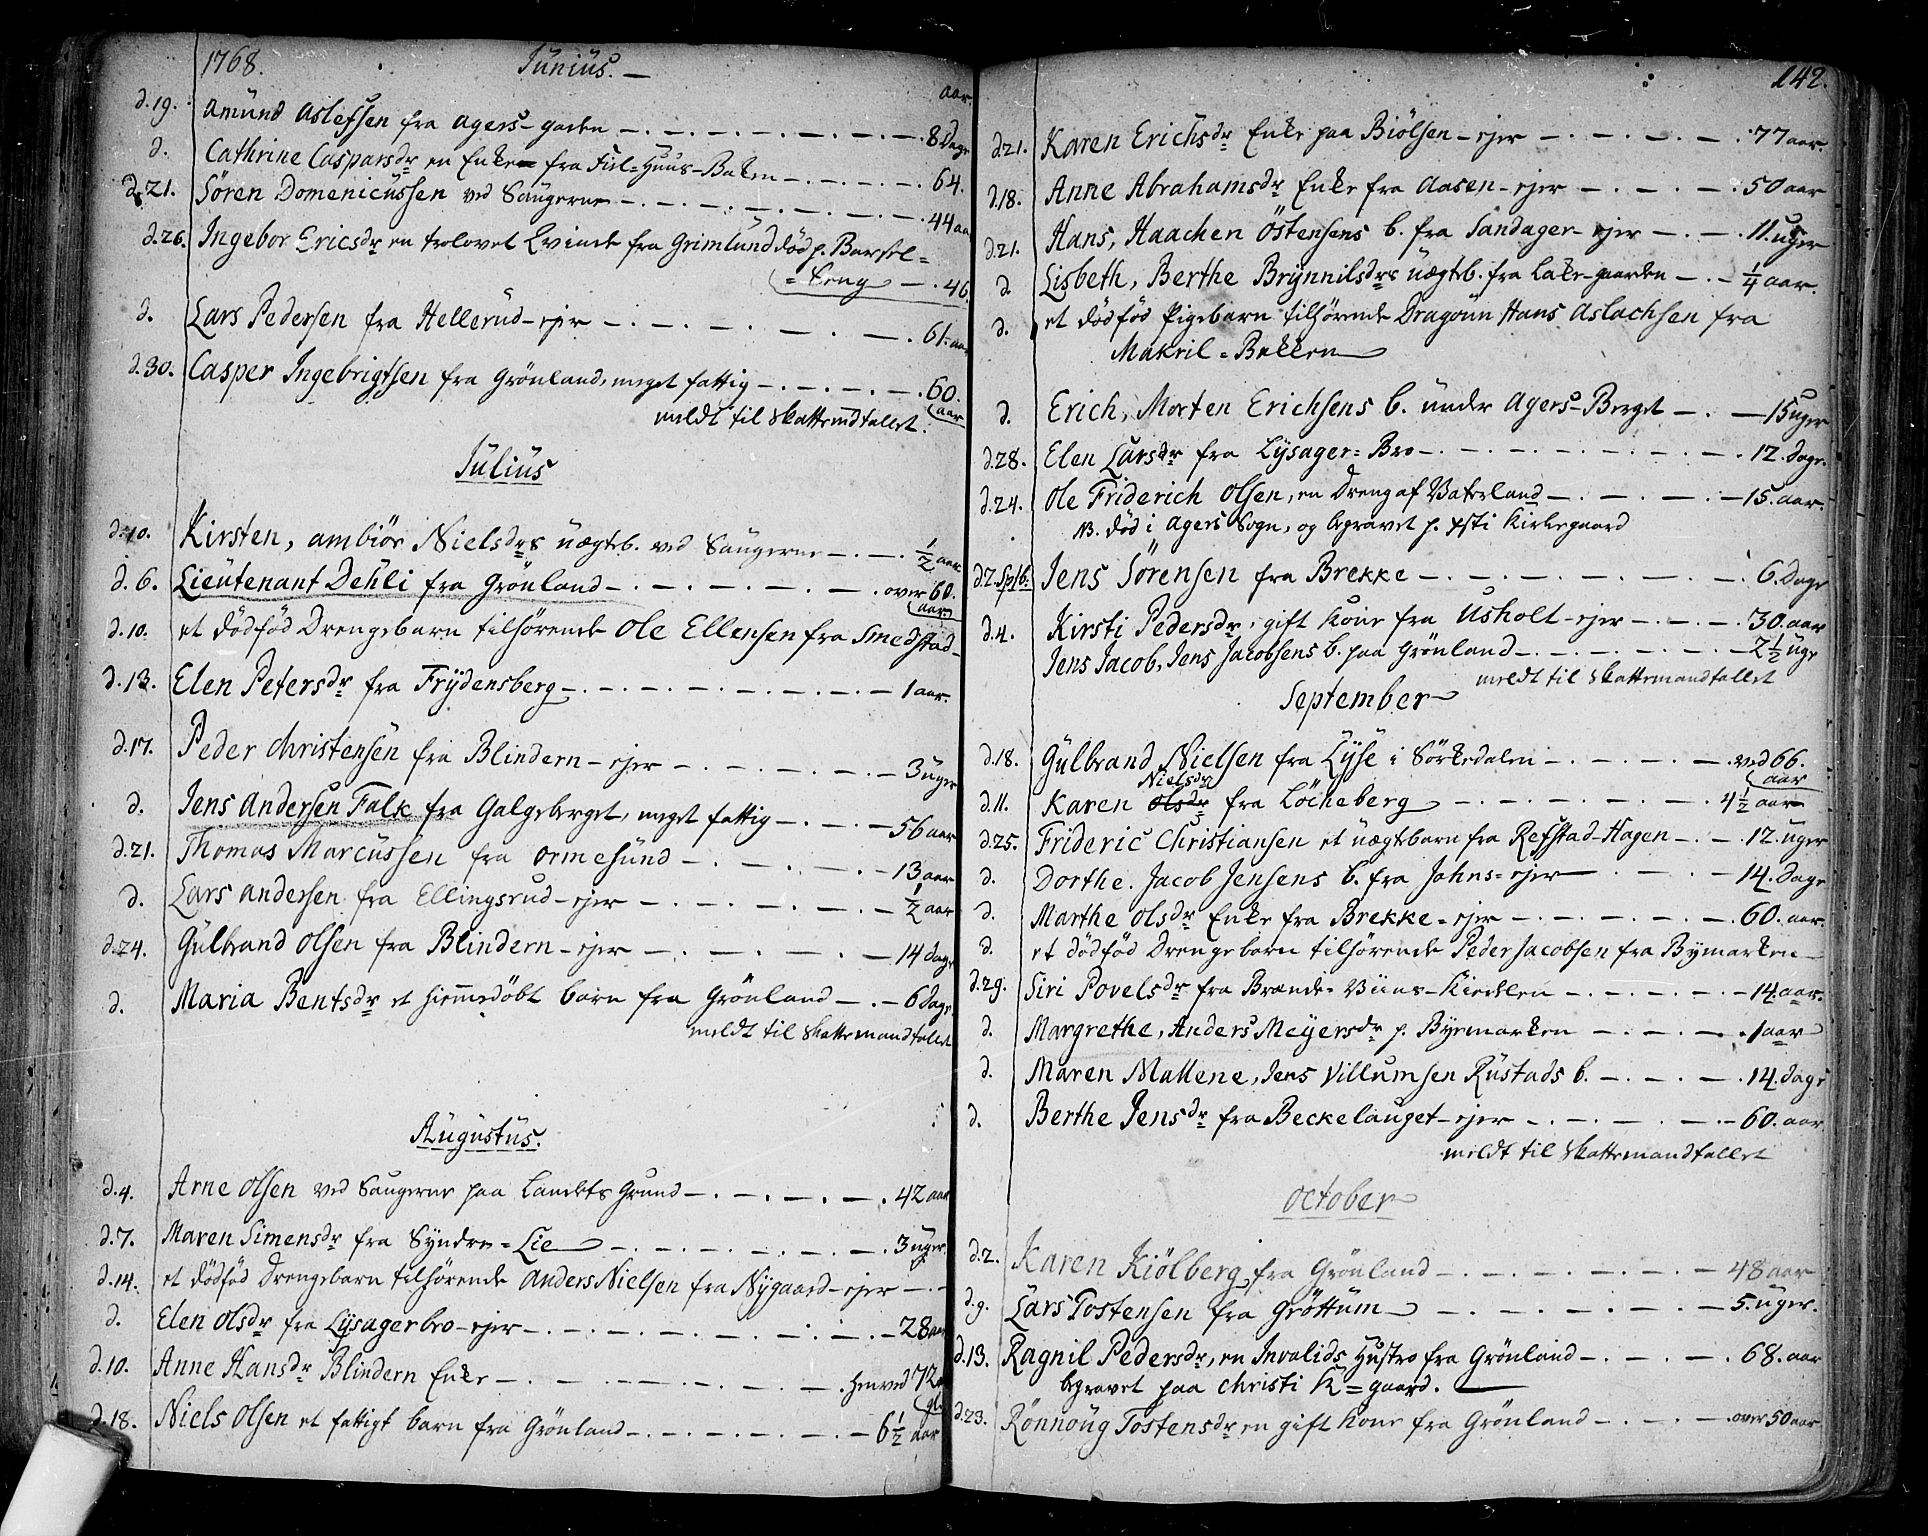 1768. Junius. —
aar
d.19. Amund Aslefsen fra Agers-gaden — 8 Dage
d. Cathrine Caspars dr en Enke fra Fiel-Huus-Baken — 64.
d.21. Sören Domenicussen ved Saugerne — 44 aar
d.26. Ingebor Erics dr en trolovet Qvinde fra Grimlund død p. Barsel=
=seng — 46.
d. Lars Pedersen fra Hellerud-ejer — 61. aar
d.30. Casper Ingebrigtsen fra Grönland, meget fattig — 60.
aar
meldt til Skattemdtallet.
Julius
d.10. Kirsten, Ambiör Niels drs uægteb. ved Saugerne — ½ aar
d.6. Lieutenant Dehli fra Grönland — over 60.
aar
d.10. et dödföd Drengebarn tilhörende Ole Ellensen fra Smedstad —
d.13. Elen Peters dr fra Frydensberg — 1 aar.
d.17. Peder Christensen fra Blindern-ejer — 3 uger
d. Jens Andersen Falk fra Galgeberget, meget fattig — 56 aar
d.21. Thomas Marcussen fra Ormesund — 13 aar
d. Lars Andersen fra Ellingsrud-ejer — ½ aar
d.24. Gulbrand Olsen fra Blindern-ejer — 14 dage
d. Maria Bents dr et hiemmedöbt barn fra Grönland — 6 dage
meldt til Skattemandtallet
Augustus.
d.4. Arne Olsen ved Saugerne paa Landets Grund — 42 aar
d.7. Maren Simens dr fra Syndre=Lie — 3 uger
d.14. et dödföd Drengebarn tilhörende Anders Nielsen fra Nygaard-ejer —
d. Elen Ols dr fra Lysagerbro-ejer — 28 aar
d.10. Anne Hans dr Blindern Enke — henved 72 a
gl.
d.18. Niels Olsen et fattigt barn fra Grönland — 6½ aar
142.
d.21. Karen Erichs dr Enke paa Biölsen-ejer — 77 aar.
d.18. Anne Abrahams dr Enke fra Aasen-ejer — 50 aar
d.21. Hans, Haachen Östensens b. fra Sandager-ejer — 11. uger
d. Lisbeth, Berthe Brynnils drs uægteb. fra Lake-gaarden — ¼ aar.
d. et dödföd Pigebarn tilhörende Dragoun Hans Aslachsen fra
Makril=Bakken
d. Erich, Morten Erichsens b. under Agers-Berget — 15 uger
d.28. Elen Lars dr fra Lysager=Bro — 12. dage.
d.24. Ole Friderich Olsen, en Dreng af Vaterland — 15. aar.
NB. död i Agers Sogn, og begravet p. Xsti Kirkegaard
d.2. Sptb. Jens Sörensen fra Brekke — 6. Dage
d.4. Kirsti Peders dr, gift Kone fra Usholt-ejer — 30. aar
Jens Jacob, Jens Jacobsens b. paa Grönland — 2½ uge
meldt til Skattemandtallet
September
d.18. Gulbrand Nielsen fra Lyse i Sörkedalen — ved 66.
aar
Niels dr
d.11. Karen Ols dr fra Löcheberg — 4½ aar
d.25. Frideric Christiansen et uægtebarn fra Refstad-Hagen — 12. uger
d. Dorthe. Jacob Jensens b. fra Jahns=ejer — 14. Dage
d. Marthe Ols dr Enke fra Brekke-ejer — 60. aar.
d. et dödföd Drengebarn tilhörende Peder Jacobsen fra Bymarken —
d.29. Siri Povels dr fra Brænde-Viins-Kieden — 14. aar.
d. Margrethe, Anders Meyers dr p. Byemarken — 1 aar
d. Maren Mallene, Jens Villumsen Rustads b. — 14. dage
d. Berthe Jens dr fra Beckelauget-ejer — 60. aar
meldt til Skattemandtallet
October
d.2. Karen Kiölberg, fra Grönland — 48 aar
d.9. Lars Tostensen fra Gröttum — 5. uger.
d.13. Ragnil Peders dr, en Invalids Hustro fra Grönland — 68. aar
begravet paa Christi K=gaard.
d.23. Rönnöug Tostens dr en gift Kone fra Grönland — over 50 aar